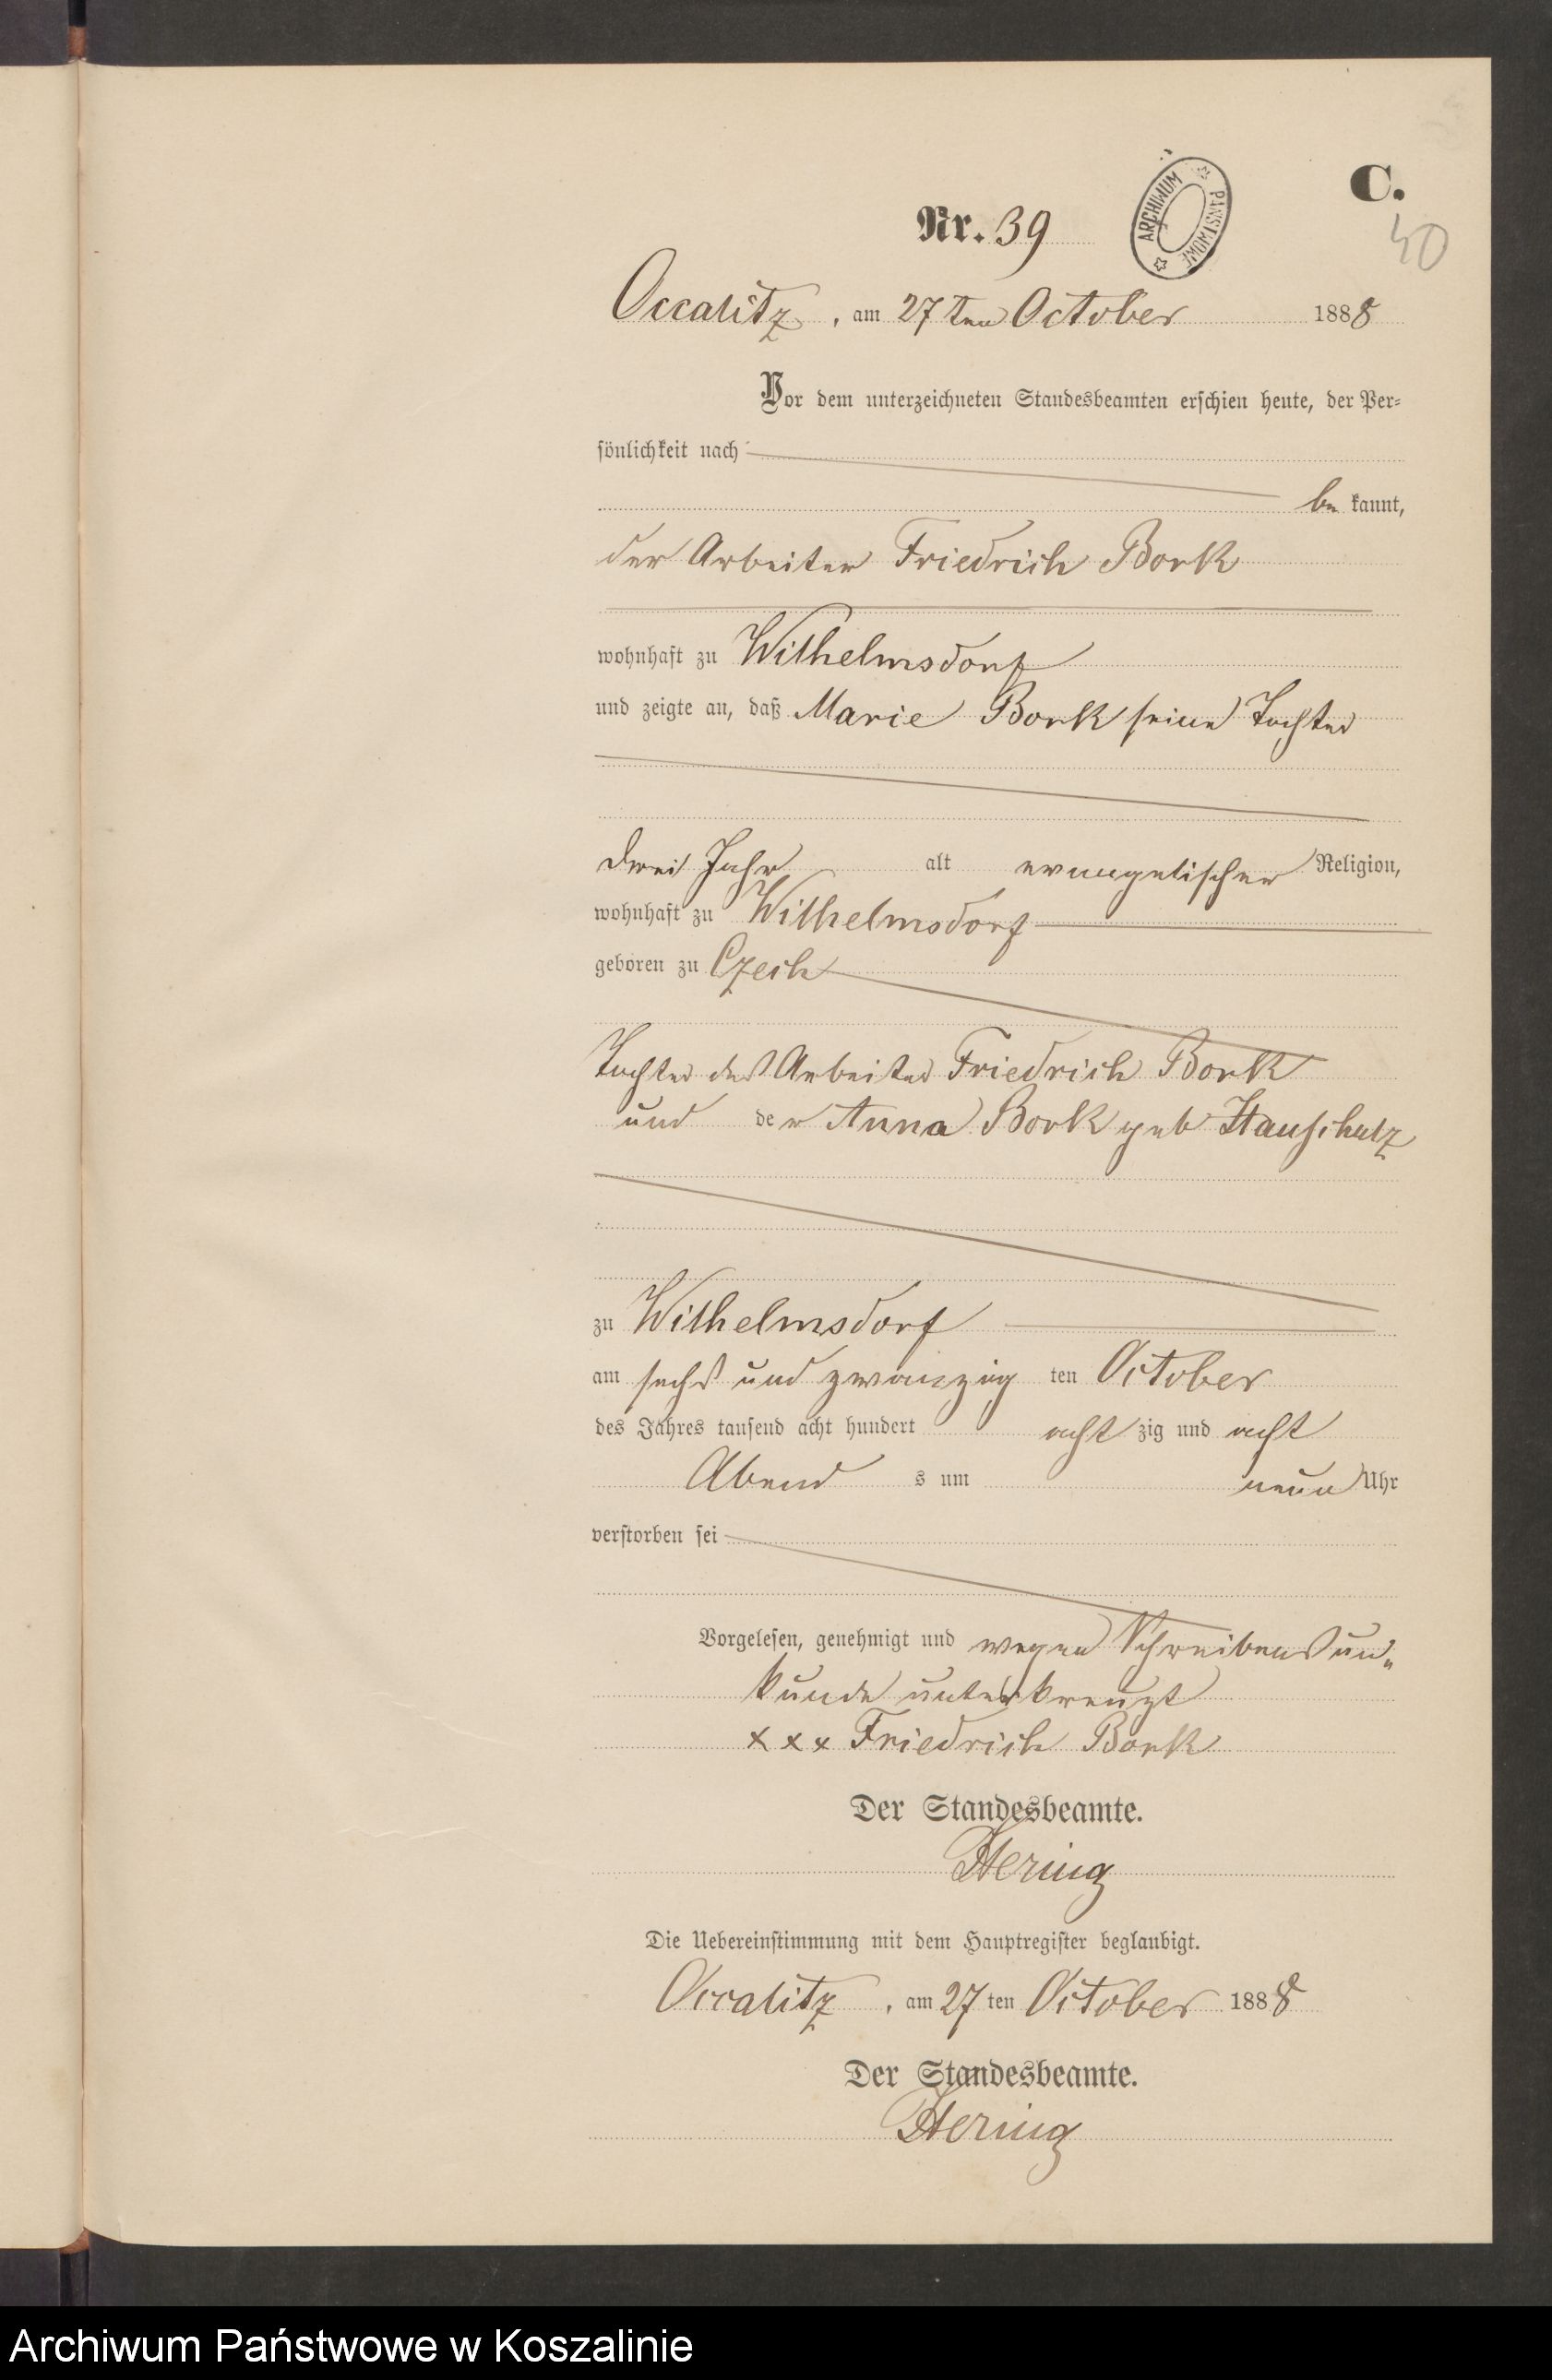 C.
Nr. 39
ARCHIWUM PAŃSTWOWE
40
Occalitz, am 27ten October 1888
Vor dem unterzeichneten Standesbeamten erschien heute, der Per-
sönlichkeit nach
be kannt,
der Arbeiter Friedrich Bork
wohnhaft zu Wilhelmsdorf
und zeigte an, daß Marie Bork seine Tochter
drei Jahr alt evangelischer Religion,
wohnhaft zu Wilhelmsdorf
geboren zu Czech
Tochter des Arbeiter Friedrich Bork
und der Anna Bork geb Hauschulz
zu Wilhelmsdorf
am sechs und zwanzig ten October
des Jahres tausend acht hundert acht zig und acht
Abend s um neun Uhr
verstorben sei
Vorgelesen, genehmigt und wegen Schreibensun-
kunde unterkreuzt
xxx Friedrich Bork
Der Standesbeamte.
Hering
Die Uebereinstimmung mit dem Hauptregister beglaubigt.
Occalitz, am 27 ten October 1888
Der Standesbeamte.
Hering
Archiwum Państwowe w Koszalinie